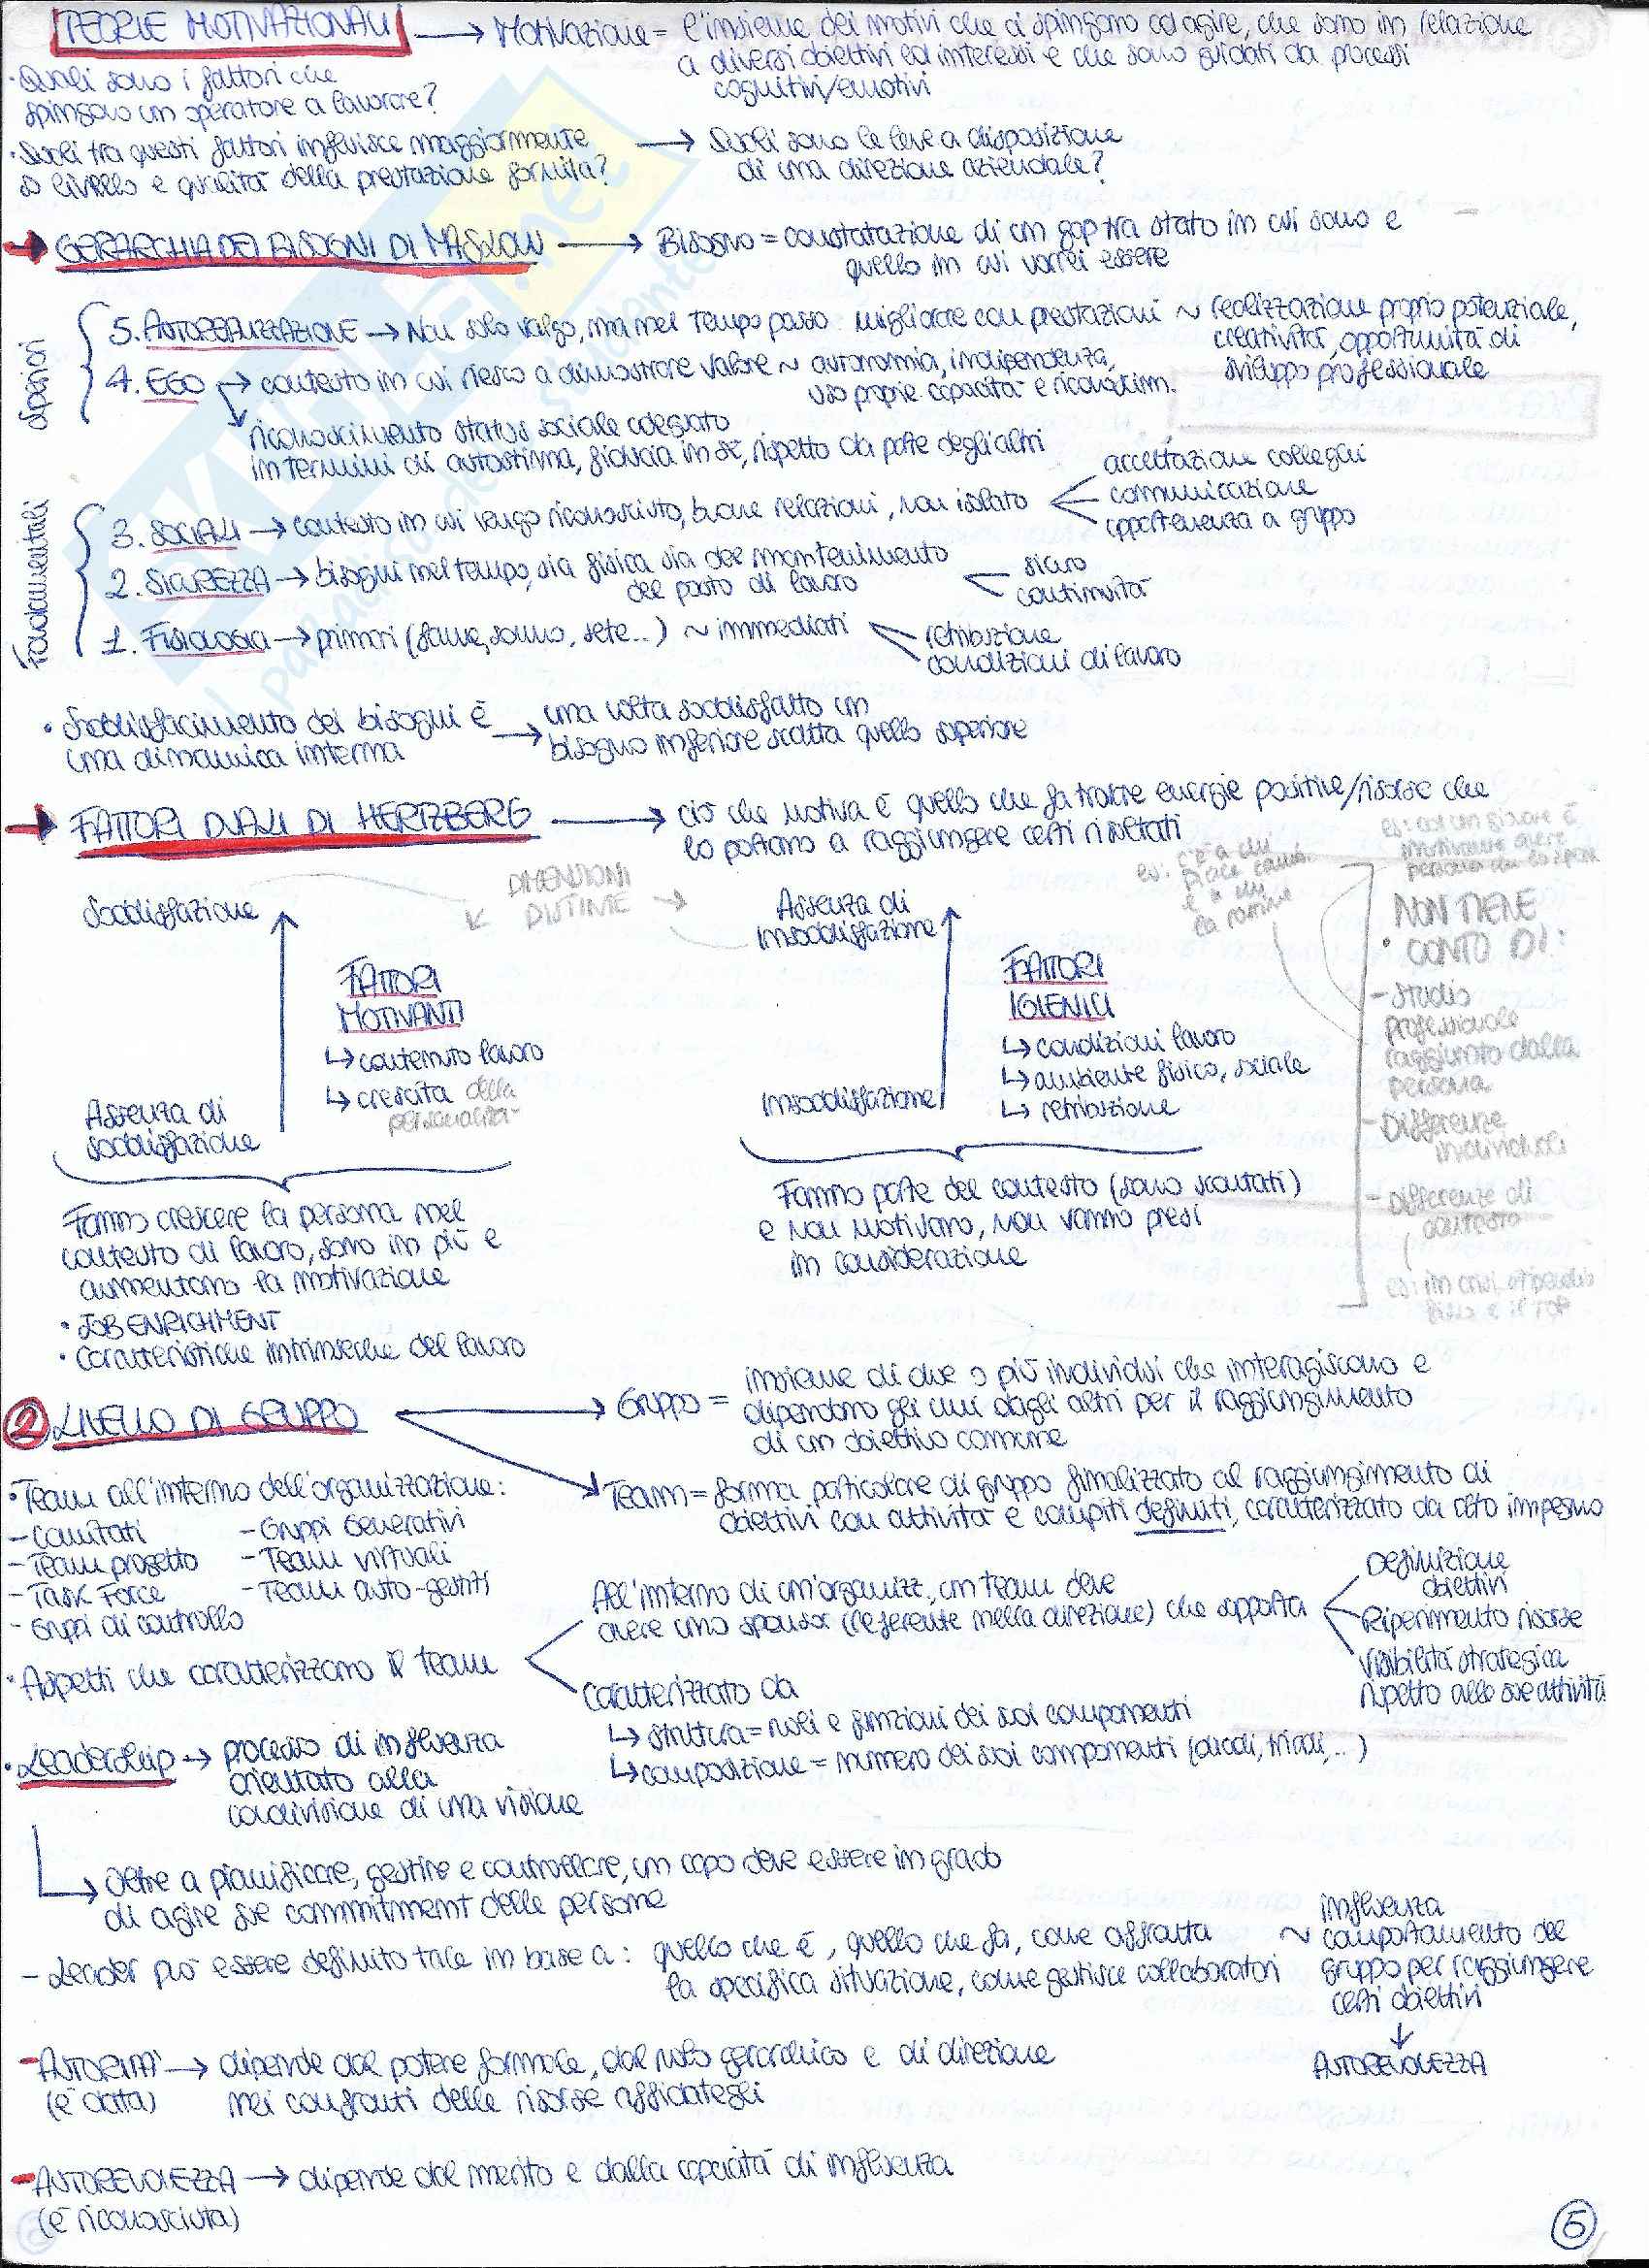 TEORIE MOTIVAZIONALI → Motivazione = l'insieme dei motivi che ci spingono ad agire, che sono in relazione
a diversi obiettivi ed interessi e che sono guidati da processi
cognitivi/emotivi
• Quali sono i fattori che
spingono un operatore a lavorare?
• Quali tra questi fattori influisce maggiormente
su livello e qualità della prestazione fornita?
→ Quali sono le leve a disposizione
di una direzione aziendale?
→ GERARCHIA DEI BISOGNI DI MASLOW → Bisogno = constatazione di un gap tra stato in cui sono e
quello in cui vorrei essere
Superiori
5. AUTOREALIZZAZIONE → Non solo valgo, ma nel tempo posso migliorare con prestazioni ~ realizzazione proprio potenziale,
creatività, opportunità di
sviluppo professionale
4. EGO → contesto in cui riesco a dimostrare valore ~ autonomia, indipendenza,
uso proprie capacità e riconoscim.
riconoscimento status sociale adeguato
in termini di autostima, fiducia in sé, rispetto da parte degli altri
Fondamentali
3. SOCIALI → contesto in cui vengo riconosciuto, buone relazioni, non isolato
accettazione colleghi
comunicazione
appartenenza a gruppo
2. SICUREZZA → bisogni nel tempo, sia fisica sia del mantenimento
del posto di lavoro
sicuro
continuità
1. FISIOLOGIA → primari (fame, sonno, sete...) ~ immediati
retribuzione
condizioni di lavoro
• Soddisfacimento dei bisogni è
una dinamica interna
→ una volta soddisfatto un
bisogno inferiore scatta quello superiore
→ FATTORI DUALI DI HERTZBERG → ciò che motiva è quello che fa trovare energie positive/risorse che
lo portano a raggiungere certi risultati
es: c'è a chi
piace
e a chi
la routine
es: ad un giovane è
motivante avere
DIMENSIONI
DISTINTE
Soddisfazione
Assenza di
soddisfazione
FATTORI
MOTIVANTI
↳ contenuto lavoro
↳ crescita della
personalità
Assenza di
insoddisfazione
Insoddisfazione
FATTORI
IGIENICI
↳ condizioni lavoro
↳ ambiente fisico, sociale
↳ retribuzione
NON TIENE
CONTO DI:
- Studio
professionale
raggiunto dalla
persona
- Differenze
individuali
- Differenze di
contesto
es: in crisi, stipendio
fisso è il TOP
Fanno crescere la persona nel
contesto di lavoro, sono in più e
aumentano la motivazione
• JOB ENRICHMENT
• Caratteristiche intrinseche del lavoro
Fanno parte del contesto (sono scontati)
e non motivano, non vanno presi
in considerazione
2 LIVELLO DI GRUPPO
→ Gruppo = insieme di due o più individui che interagiscono e
dipendono gli uni dagli altri per il raggiungimento
di un obiettivo comune
→ Team = forma particolare di gruppo finalizzato al raggiungimento di
obiettivi con attività e compiti definiti, caratterizzato da alto impegno
• Team all'interno dell'organizzazione:
- Comitati
- Gruppi Generativi
- Team progetto
- Team virtuali
- Task Force
- Team auto-gestiti
- Gruppi di controllo
• Aspetti che caratterizzano il team
All'interno di un'organizz., un team deve
avere uno sponsor (referente nella direzione) che supporta
Definizione
obiettivi
Reperimento risorse
Visibilità strategica
rispetto alle sue attività
Caratterizzato da
↳ struttura = ruoli e funzioni dei suoi componenti
↳ composizione = numero dei suoi componenti (diadi, triadi, ..)
• Leadership → processo di influenza
orientato alla
condivisione di una visione
↳ Oltre a pianificare, gestire e controllare, un capo deve essere in grado
di agire sul commitment delle persone
- Leader può essere definito tale in base a: quello che è, quello che fa, come affronta
la specifica situazione, come gestisce collaboratori
~ influenza
comportamento del
gruppo per raggiungere
certi obiettivi
↓
AUTOREVOLEZZA
- AUTORITÀ → dipende dal potere formale, dal ruolo gerarchico e di direzione
(è data) nei confronti delle risorse affidategli
- AUTOREVOLEZZA → dipende dal merito e dalla capacità di influenza
(è riconosciuta)
5